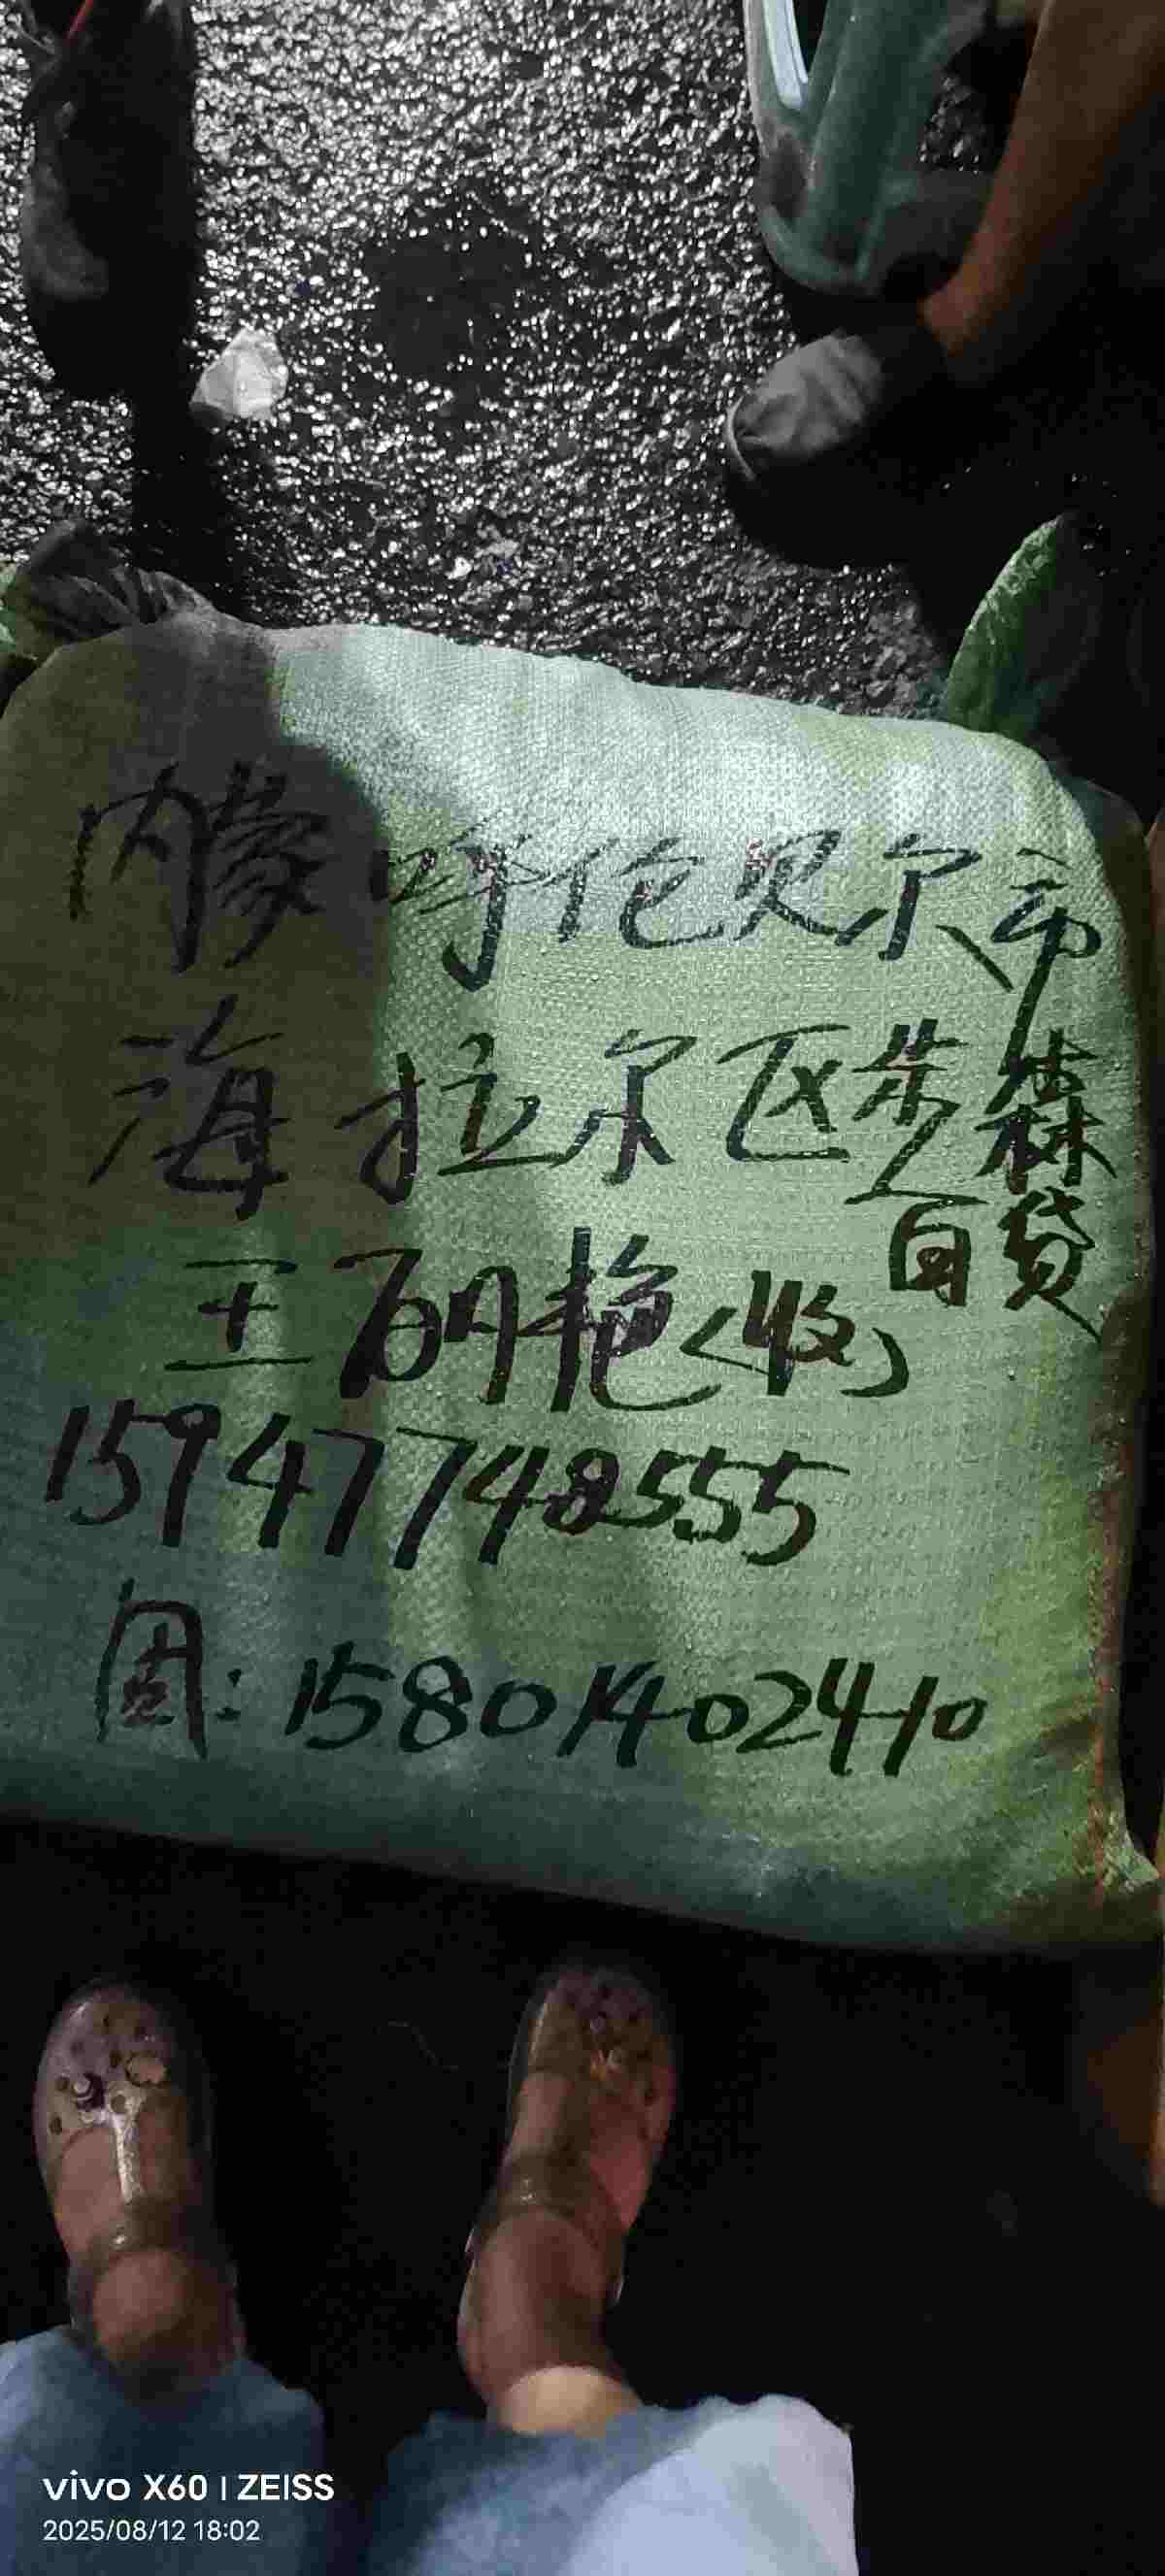 内蒙呼伦贝尔市
海拉尔区朱之森
百货
王明艳(收)
15947748555
周:15801402410
vivo X60 | ZEISS
2025/08/12 18:02